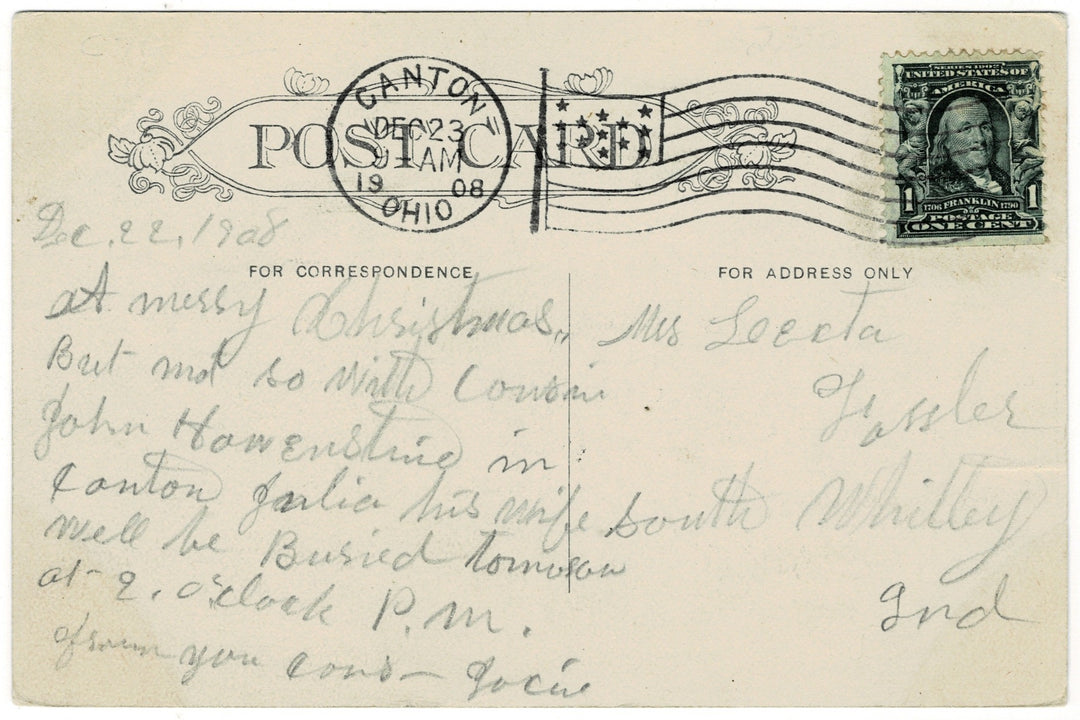 POST CARD
CANTON
DEC 23
9 AM
1908
OHIO
SERIES 1902
UNITED STATES OF
AMERICA
1 1706 FRANKLIN 1790 1
POSTAGE
ONE CENT
Dec, 22, 1908
FOR CORRESPONDENCE
At merry Christmas,,
But not so with Cousin
John Howenstine in
Canton Julia his wife
will be Buried tomorow
at 2. O'clock P.M.
from you cous-
FOR ADDRESS ONLY
Mrs
Fossler
South Whitley
Ind